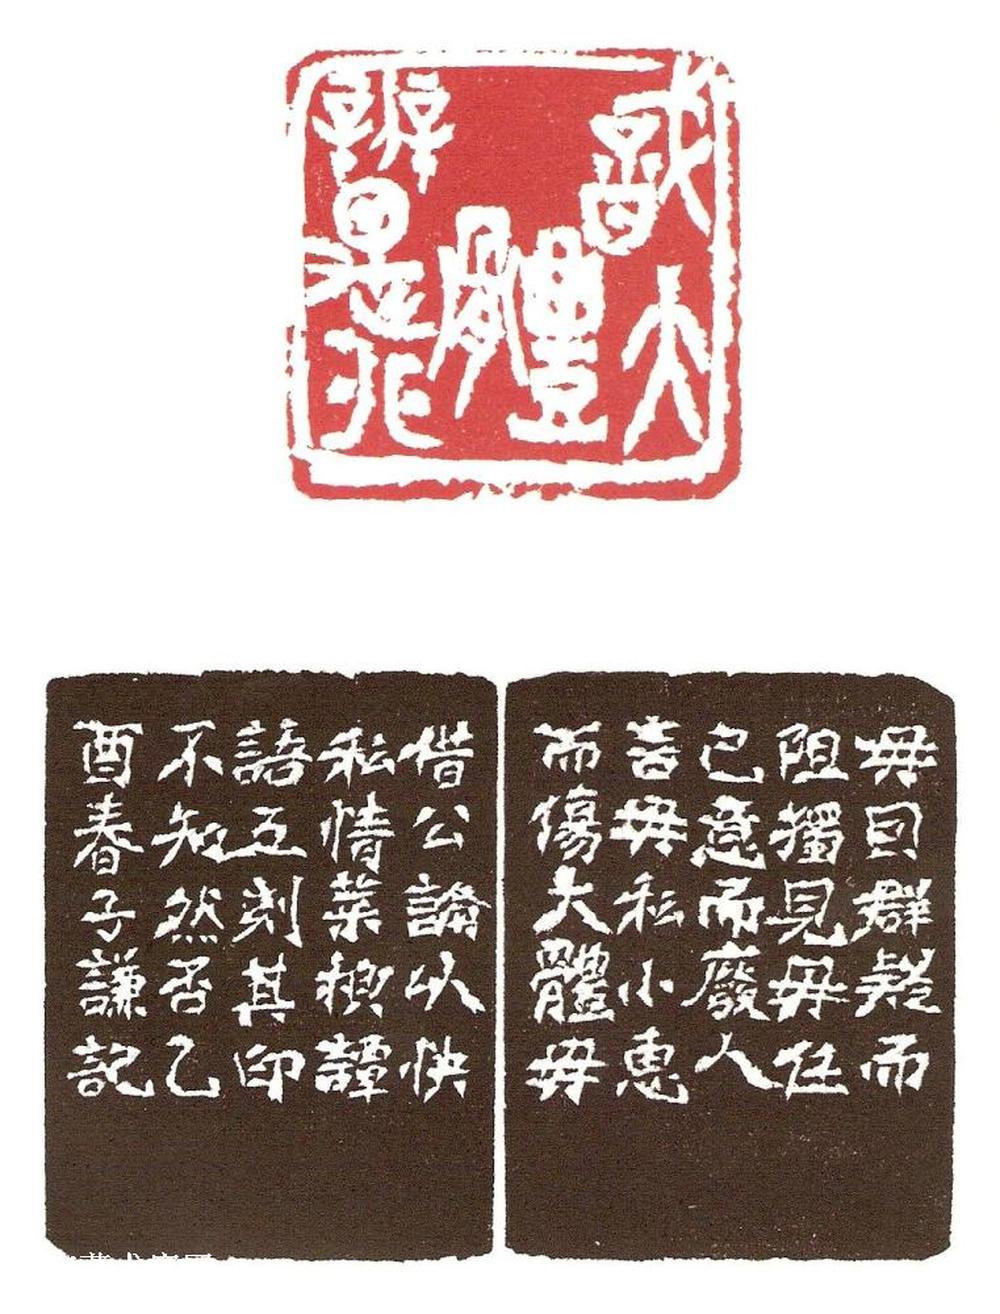 識大
體
辨是非
毋因群疑而
阻獨見毋任
己意而廢人
言毋私小惠
而傷大體毋
借公論以快
私情菜根譚
語互刻其印
不知然否乙
酉春子謙記